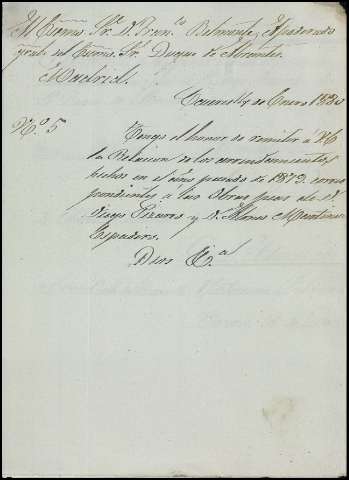 Al Excmo. Sr. D. Fran.co Belmonte, Apoderado
gral. del Excmo. Sr. Duque de Abrantes.
Madrid.
de Enero 1880
N.o 5
Tengo el honor de remitir á V.E.
la Relacion de los arrendamientos
hechos en el año pasado de 1879 corres
pondientes á las Obras pias de D.
Diego Pizarro y D. Alonso Martinez
Espadero.
Dios E.a